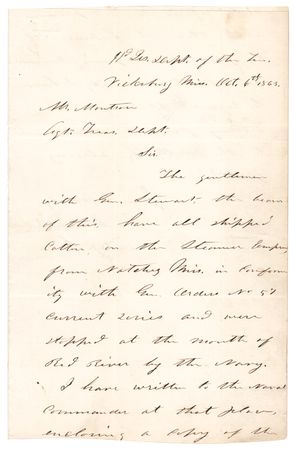 Hd Qrs. Dept. of the Ten.
Vicksburg Miss. Oct. 6th 1863.
Mr.
Agt. Treas. Dept.
Sir
The gentlemen
with Gen. Stewart the bearer
of this, have all shipped
Cotton on the Steamer
from Natchez Miss. in conform
ity with Gen. Orders No 57
current series and were
stopped at the mouth of
Red River by the Navy.
I have written to the Naval
Commander at that place,
enclosing a copy of the